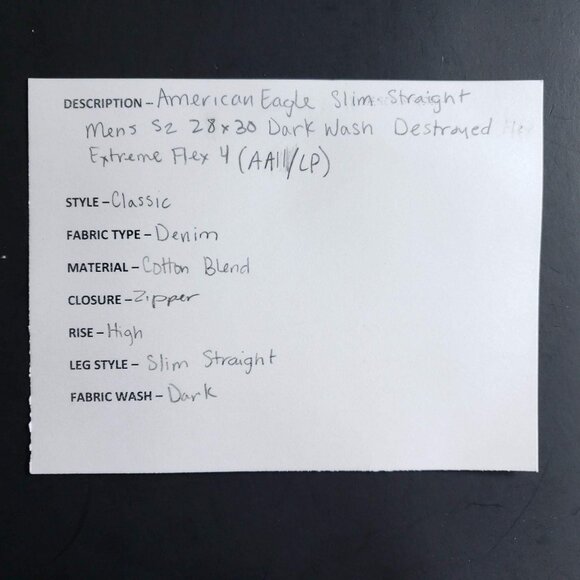 DESCRIPTION – American Eagle Slim Straight
Mens Sz 28x30 Dark Wash Destroyed
Extreme Flex 4 (AA11/LP)
STYLE – Classic
FABRIC TYPE – Denim
MATERIAL – Cotton Blend
CLOSURE – Zipper
RISE – High
LEG STYLE – Slim Straight
FABRIC WASH – Dark